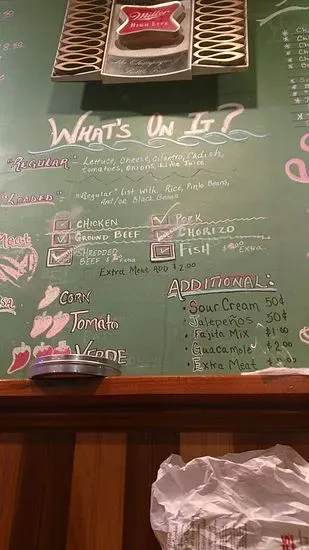 Miller
HIGH LIFE
The Champagne of Bottle Beer
8.50
WHAT'S ON IT?
"REGULAR" Lettuce, cheese, cilantro, radish,
tomatoes, onions, Lime Juice
"LOADED" = "Regular" list with Rice, Pinto Beans,
And/or Black Beans
Meat
CHICKEN
PORK
GROUND BEEF
CHORIZO
SHREDDED
BEEF
FISH
Extra
Extra Meat ADD $2.00
CORN
TOMATO
VERDE
ADDITIONAL:
Sour Cream 50¢
Jalepeños 50¢
Fajita Mix $1.00
Guacamole $2.00
Extra Meat